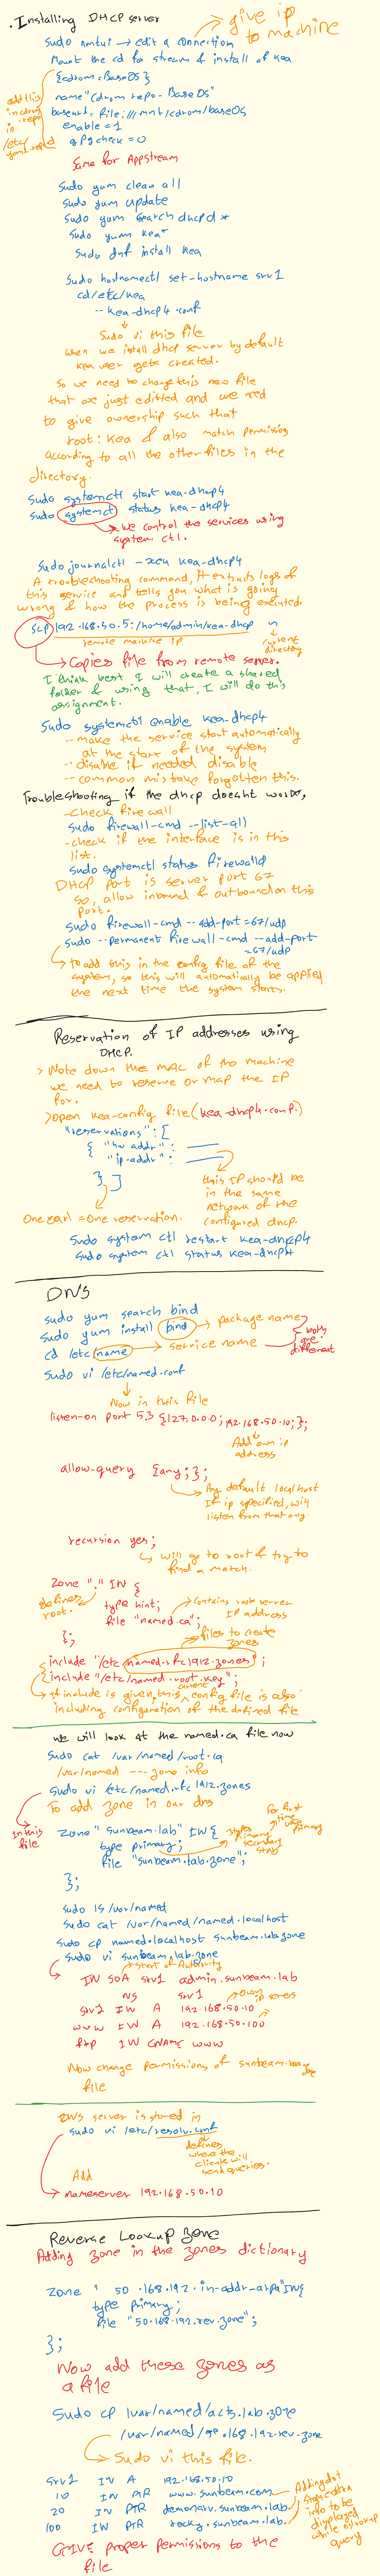 . Installing DHCP server
give ip to machine
sudo nmtui → edit a connection
Mount the cd for stream & install of kea
[cdrom-BaseOS]
name "Cdrom repo - BaseOS"
baseurl = file:///mnt/cdrom/baseOS
enable = 1
gpgcheck = 0
add this in cdrom.repo in /etc/
Same for Appstream
sudo yum clean all
sudo yum update
sudo yum search dhcpd*
sudo yum kea*
sudo dnf install kea
sudo hostnamectl set-hostname srv1
cd /etc/kea
-- kea-dhcp4.conf
sudo vi this file
when we install dhcp server by default
kea user gets created.
So we need to change this new file
that we just editted and we need
to give ownership such that
root: kea & also match permissions
according to all the other files in the
directory.
sudo systemctl start kea-dhcp4
sudo systemctl status kea-dhcp4
→ we control the services using
system ctl.
Sudo journalctl -xeu kea-dhcp4
A troubleshooting command, it extracts logs of
this service and tells you what is going
wrong & how the process is being executed.
scp 192.168.50.5:/home/admin/kea-dhcp
remote machine ip
current directory
→ Copies file from remote server.
I think best I will create a shared
folder & using that, I will do this
assignment.
Sudo systemctl enable kea-dhcp4
-- make the service start automatically
at the start of the system
-- disable if needed disable
-- common mistake forgotten this.
Troubleshooting if the dhcp doesnt works,
- check firewall
sudo firewall-cmd --list-all
- check if the interface is in this
list.
sudo systemctl status firewalld
DHCP port is server port 67
so, allow inbound & outbound on this
port.
sudo firewall-cmd --add-port=67/udp
sudo --permanent firewall-cmd --add-port
=67/udp
→ to add this in the config file of the
system, so this will automatically be applied
the next time the system starts.
Reservation of IP addresses using
DHCP.
> Note down the MAC of the machine
we need to reserve or map the IP
for.
> Open kea-config file (kea-dhcp4.conf.)
"reservations": [
{ "hw addr":
"ip-addr":
} ]
this IP should be
in the same
network of the
configured dhcp.
One curl = One reservation.
Sudo system ctl restart kea-dhcp4
Sudo system ctl status kea-dhcp4
DNS
sudo yum search bind
sudo yum install bind → package name
cd /etc/name → service name
both are different
sudo vi /etc/named.conf
Now in this file
listen-on port 53 {127.0.0.0; 192.168.50.10;};
Add own ip
address
allow-query {any;};
By default localhost
If ip specified, will
listen from that only.
recursion yes;
will go to root & try to
find a match.
Zone "." IN {
defines root.
type hint;
file "named.ca";
Contains root server
IP address
};
files to create
zones
include "/etc/named.rfc1912.zones";
include "/etc/named.root.key";
→ If include is given, this current config file is also
including configuration of the defined file
we will look at the named.ca file now
Sudo cat /var/named/root.ca
/var/named --- zone info
Sudo vi /etc/named.rfc1912.zones
To add zone in our dns
In this file
Zone "sunbeam.lab" IN {
type primary;
file "sunbeam.lab.zone";
};
types
primary
secondary
for first
time use
primary
sudo ls /var/named
Sudo cat /var/named/named.localhost
Sudo cp named.localhost sunbeam.lab.zone
sudo vi sunbeam.lab.zone
Start of Authority
IN SOA srv1 admin.sunbeam.lab
NS srv1
srv1 IN A 192.168.50.10
www IN A 192.168.50.100
ftp IN CNAME www
Now change permissions of sunbeam.lab.zone
file
DNS server is stored in
sudo vi /etc/resolv.conf
defines
where the
clients will
send queries.
Add
nameserver 192.168.50.10
Reverse Lookup Zone
Adding zone in the zones dictionary
Zone " 50.168.192.in-addr-arpa" IN {
type primary;
file "50.168.192.rev.zone";
};
Now add these zones as
a file
Sudo cp /var/named/acts.lab.zone
/var/named/50.168.192.rev.zone
→ Sudo vi this file.
srv1 IN A 192.168.50.10
10 IN PTR www.sunbeam.com.
20 IN PTR demosrv.sunbeam.lab.
100 IN PTR rocky.sunbeam.lab.
Adding dot
stops extra
info to be
displayed
while nslookup
query
GIVE proper permissions to the
file